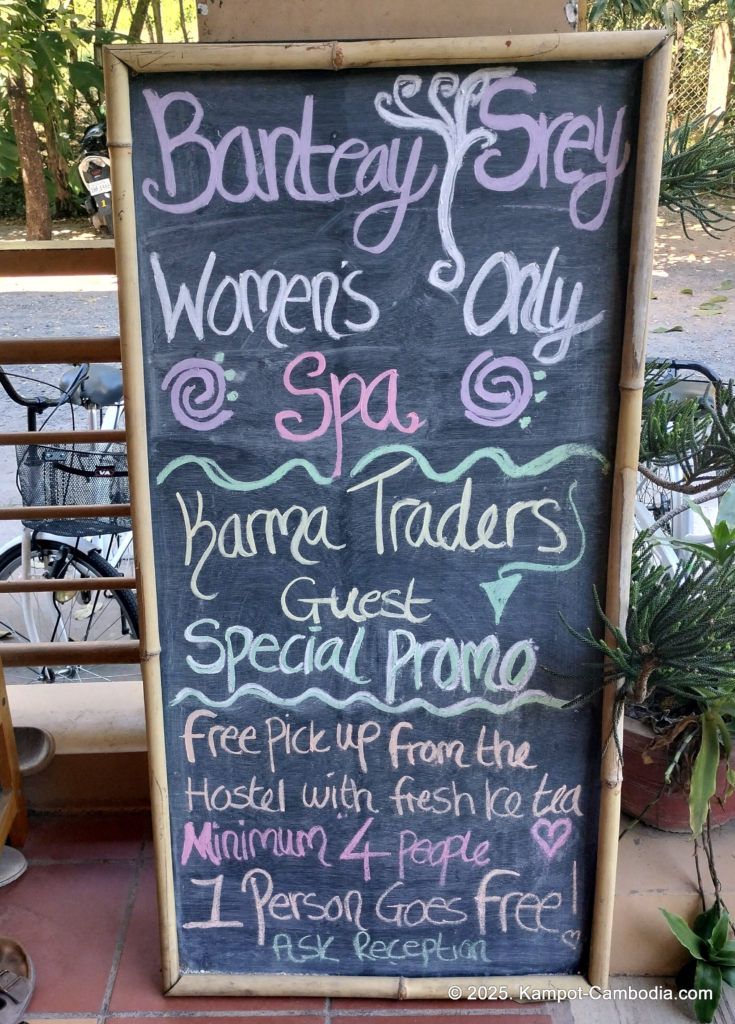 Banteay Srey
Women's Only
Spa
Karma Traders
Guest
Special Promo
Free Pick up from the
Hostel with fresh Ice tea
Minimum 4 People
1 Person Goes Free!
Ask Reception
© 2025. Kampot-Cambodia.com